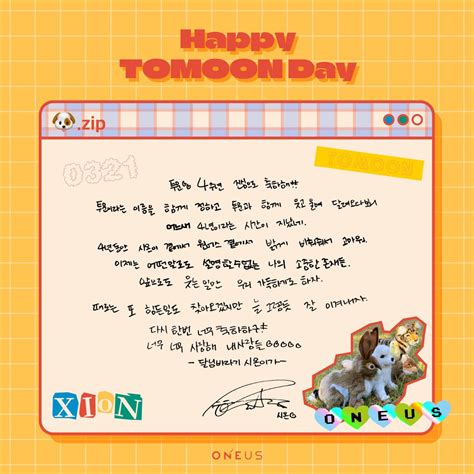 Happy
TOMOON Day
.zip
0321
TOMOON
투문영 4주년 진심으로 축하해!!!
투문이라는 이름을 함께 정하고 투문과 함께 웃고 울며 달려오다보니
4년이라는 시간이 지났네.
4년동안 시온이 곁에서 원어스 곁에서 밝게 비춰줘서 고마워.
이제는 어떤말로도 설명할수없는 나의 소중한 존재들.
앞으로도 웃는일만 우리 가득하기로 하자.
때로는 또 힘든일도 찾아오겠지만 늘 그랬듯 잘 이겨내자.
다시 한번 너무 축하하구
너무 너무 사랑해 내사랑들
- 달님바라기 시온이가-
XION
시온
ONEUS
ONEUS